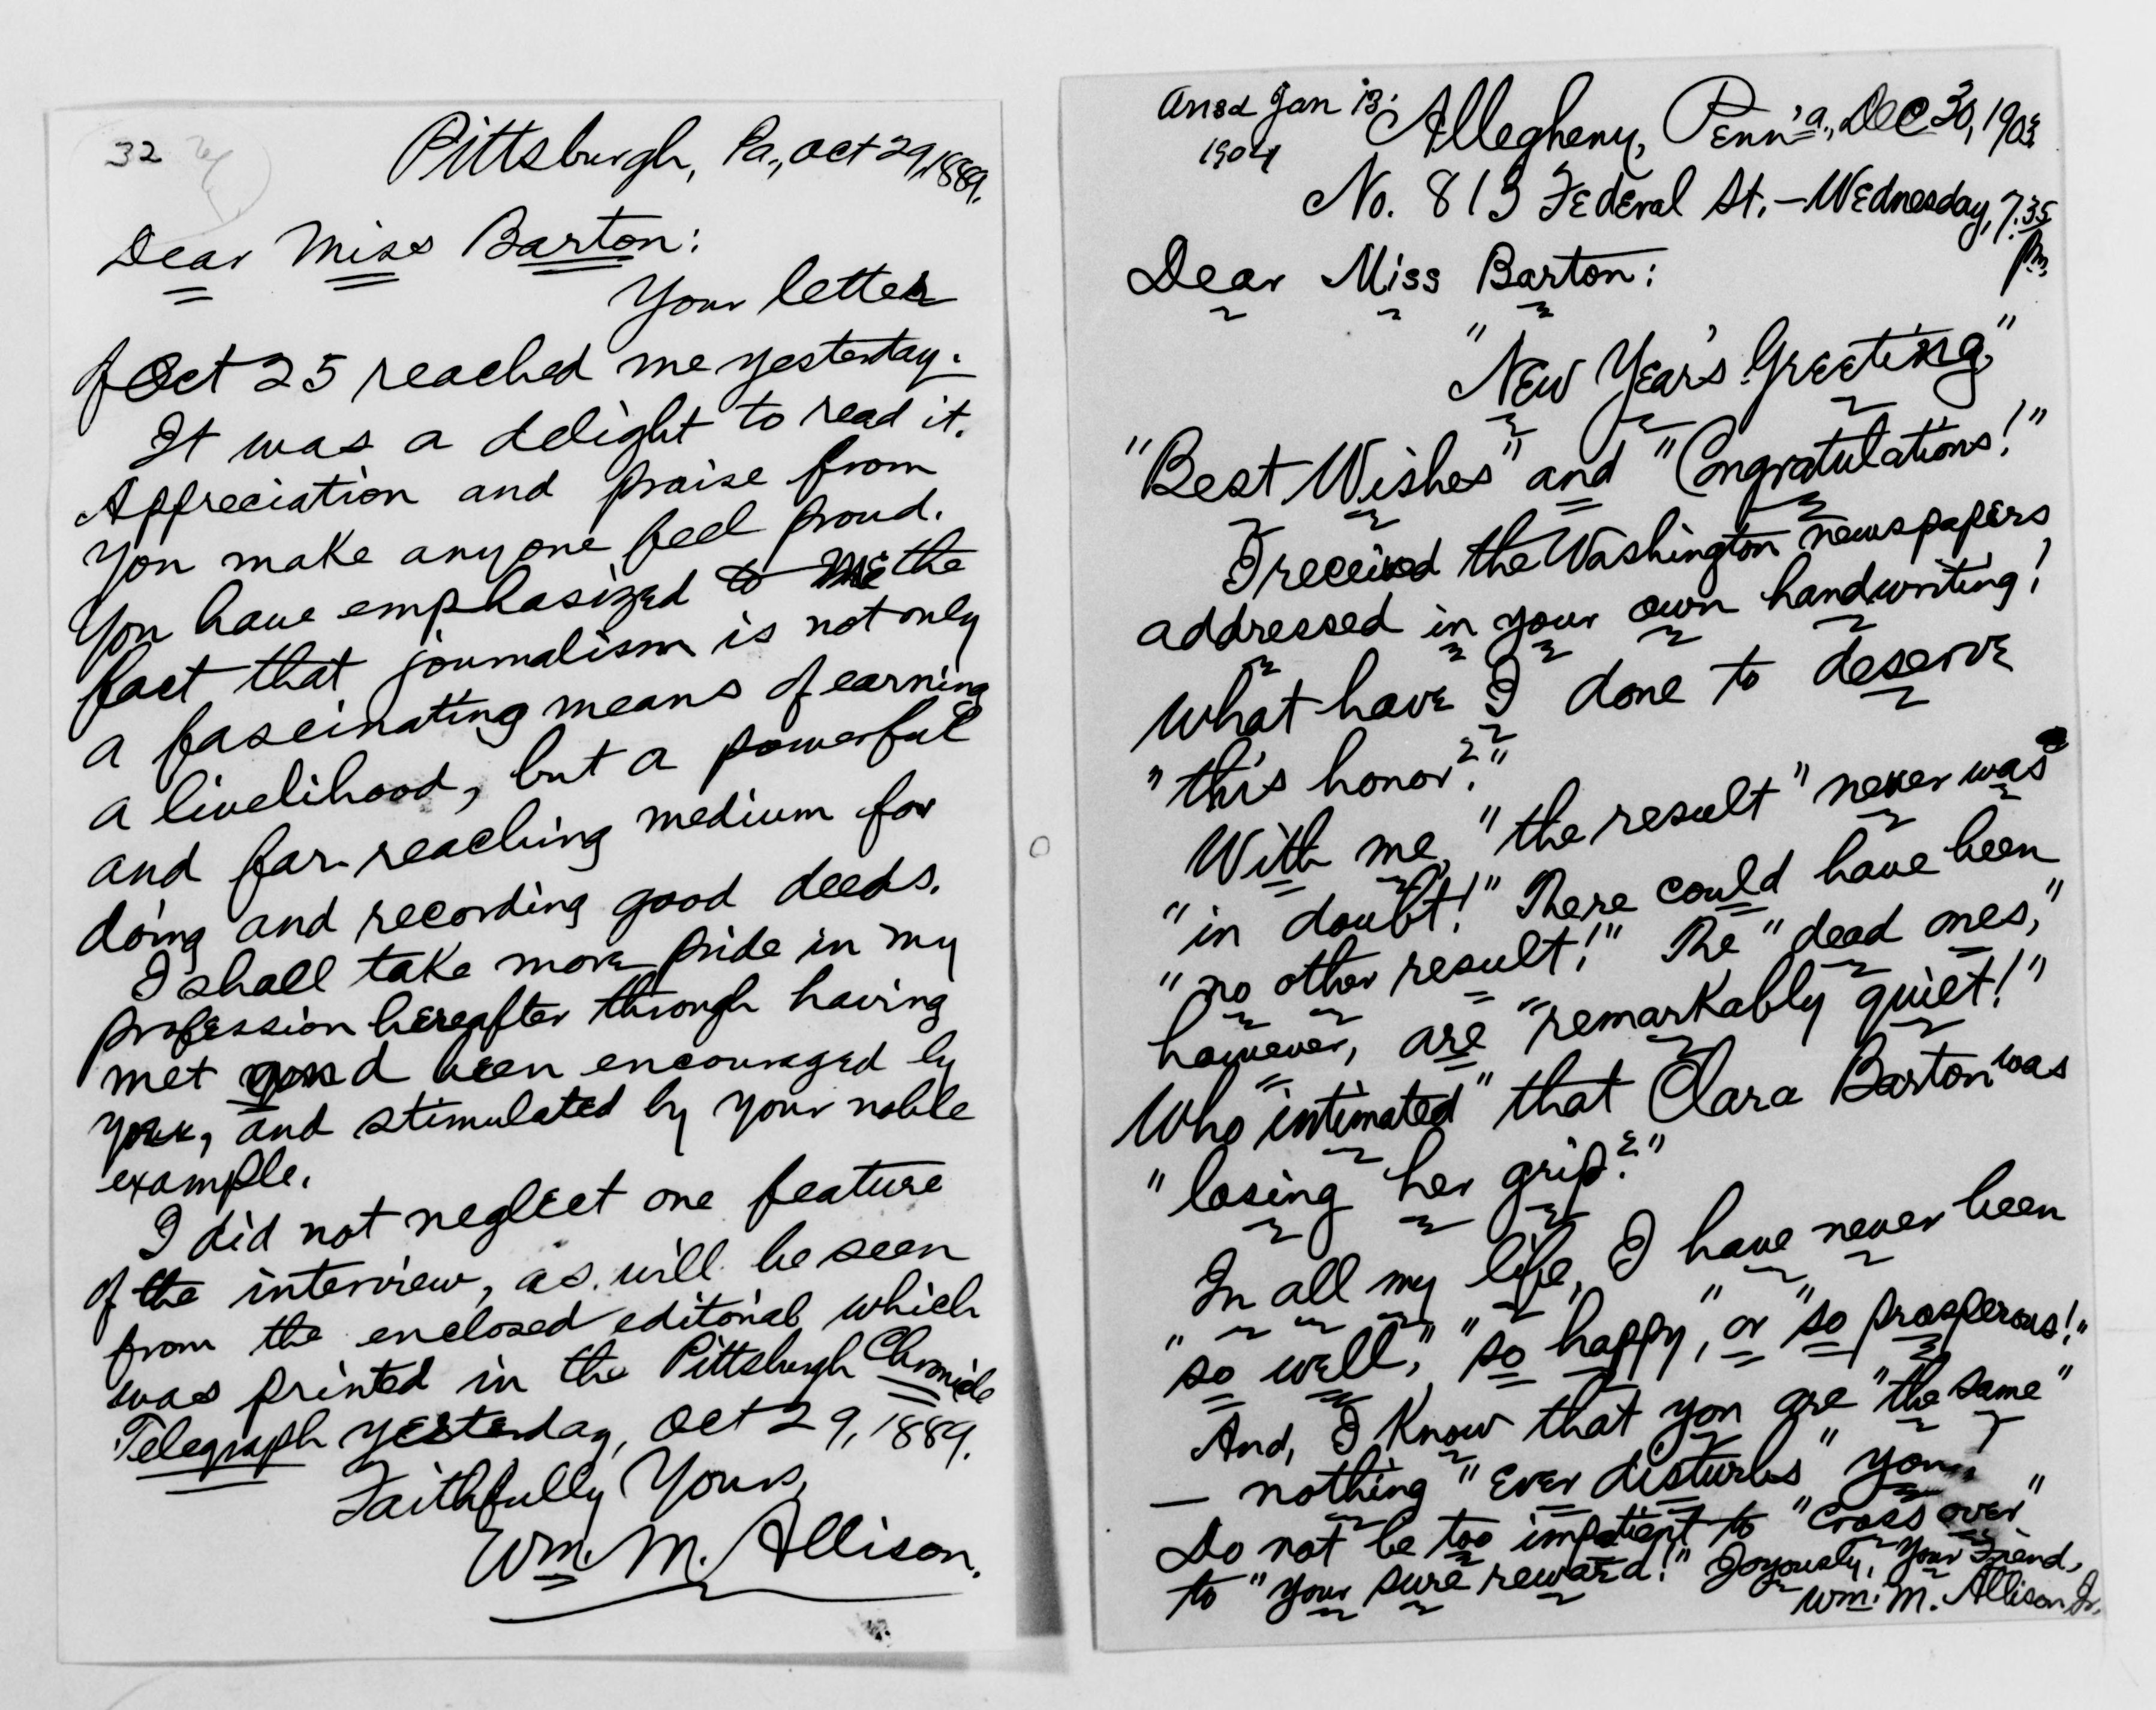 32
Pittsburgh, Pa., Oct 29, 1889.
Dear Miss Barton:
Your letter
of Oct 25 reached me yesterday.
It was a delight to read it.
Appreciation and praise from
you make anyone feel proud.
You have emphasized to me the
fact that journalism is not only
a fascinating means of earning
a livelihood, but a powerful
and far-reaching medium for
doing and recording good deeds.
I shall take more pride in my
profession hereafter through having
met and been encouraged by
you, and stimulated by your noble
example.
I did not neglect one feature
of the interview, as will be seen
from the enclosed editorial which
was printed in the Pittsburgh Chronicle
Telegraph yesterday, Oct 29, 1889.
Faithfully Yours,
Wm. M. Allison.
Ansd Jan 13.
1904
Allegheny, Penn'a., Dec 30, 1903
No. 813 Federal St. – Wednesday, 7.35
Pm.
Dear Miss Barton:
"New Year's Greeting,"
"Best Wishes" and "Congratulations!"
I received the Washington newspapers
addressed in your own handwriting!
What have I done to deserve
"this honor?"
With me, "the result" never was
"in doubt!" There could have been
"no other result!" The "dead ones,"
however, are "remarkably quiet!"
Who "intimated" that Clara Barton was
"losing her grip?"
In all my life, I have never been
"so well," "so happy," or "so prosperous!"
And, I know that you are "the same"
— nothing "ever disturbs" you
Do not be too impatient to "cross over"
to "your sure reward!" Joyously, Your Friend,
Wm. M. Allison, Jr.